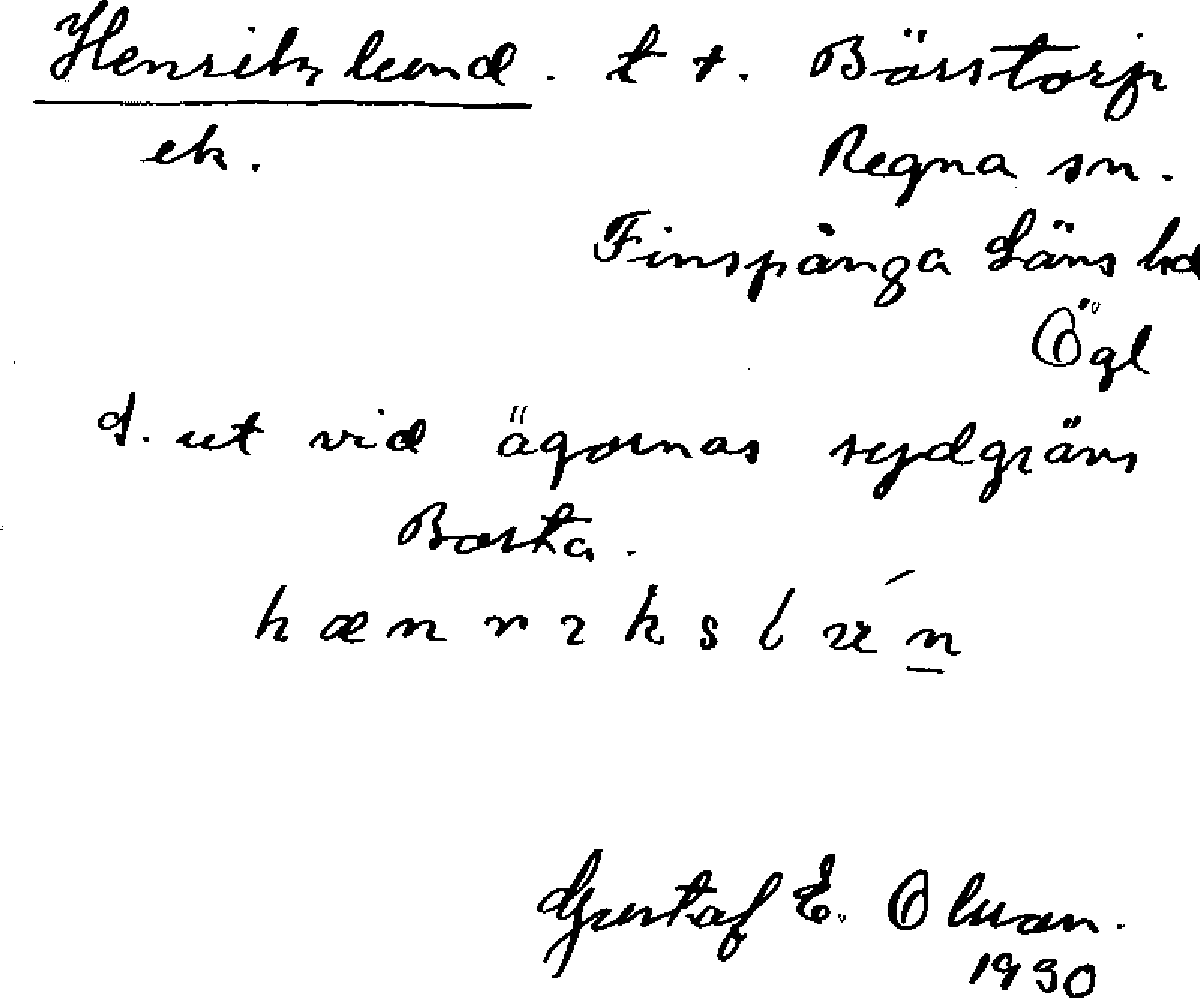 Henrikslund. t t. Bärstorp
ek. Regna sn.
Finspånga Läns hd
Ögl
d. ut vid ägornas sydgräns
Borta.
h æ n r ɪ k s l ʉ́ n
Gustaf E. Olsson.
1930